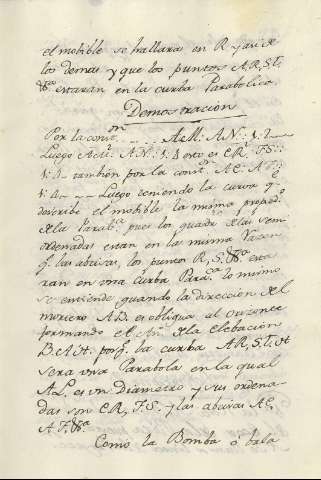 el mobible se hallara en R y asi de
los demas y que los puntos A, R, S, t,
&a estaran en la curba Parabolica.
Demostracion
Por la const.on AM. AN : 1. 2
Luego AM. AN : 1. 4 esto es CR. FS ::
1: 4 también por la const.on AC. AF ::
1: 4 Luego teniendo la curva q.e
describe el mobible la misma propied.d
de la Parab.a pues los quadr.s de las sem-
ordenadas estan en la misma Razon
q. las abcisas, los puntos R, S, &a esta
ran en una curba Parab.ca lo mismo
se entiende quando la direccion del
mortero AB. es obliqua al orizonte
formando el An.o de la elebacion
B.A.H. porq.e la curba AR, S, t, H
sera una Parabola en la qual
AL. es un Diametro y sus ordena-
das son CR, F.S. y las abcisas AC,
A F. &a
Como la Bomba ó bala